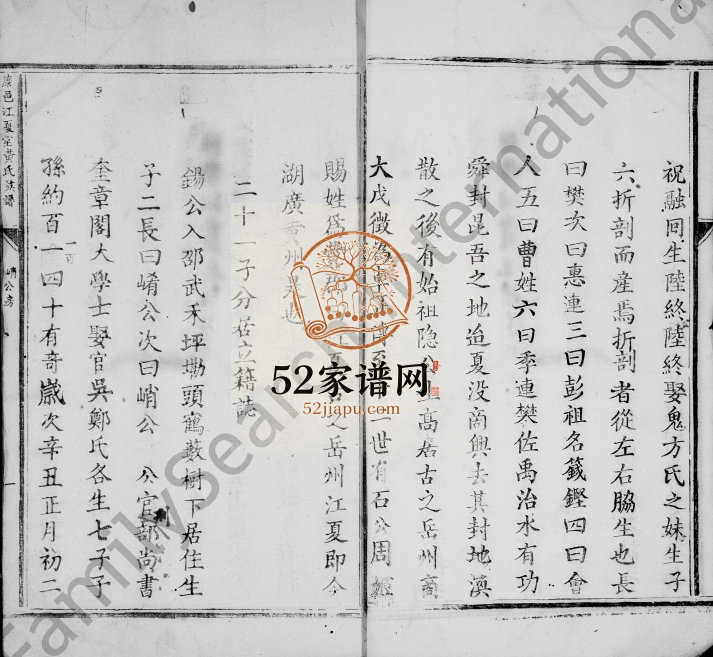 祝融同生陸終陸終娶鬼方氏之妹生子
六折剖而產焉折剖者從左右脇生也長
曰樊次曰惠連三曰彭祖名籛鏗四曰會
人五曰曹姓六曰季連樊佐禹治水有功
舜封昆吾之地迨夏没商興去其封地渙
散之後有始祖隐公高居古之岳州商
大戊徵為世有石公周經
賜姓為之岳州江夏即今
湖廣州是也
二十一子分居立籍誌
錫公入邵武禾坪墈頭鶴藪樹下居住生
子二長曰崤公次曰峭公 公官部尚書
奎章閣大學士娶官吳鄭氏各生七子子
孫約百一百四十有奇歲次辛丑正月初二
康邑江夏堂黃氏族譜
峭公房
一
52家谱网
52jiapu.com
FamilySearch International